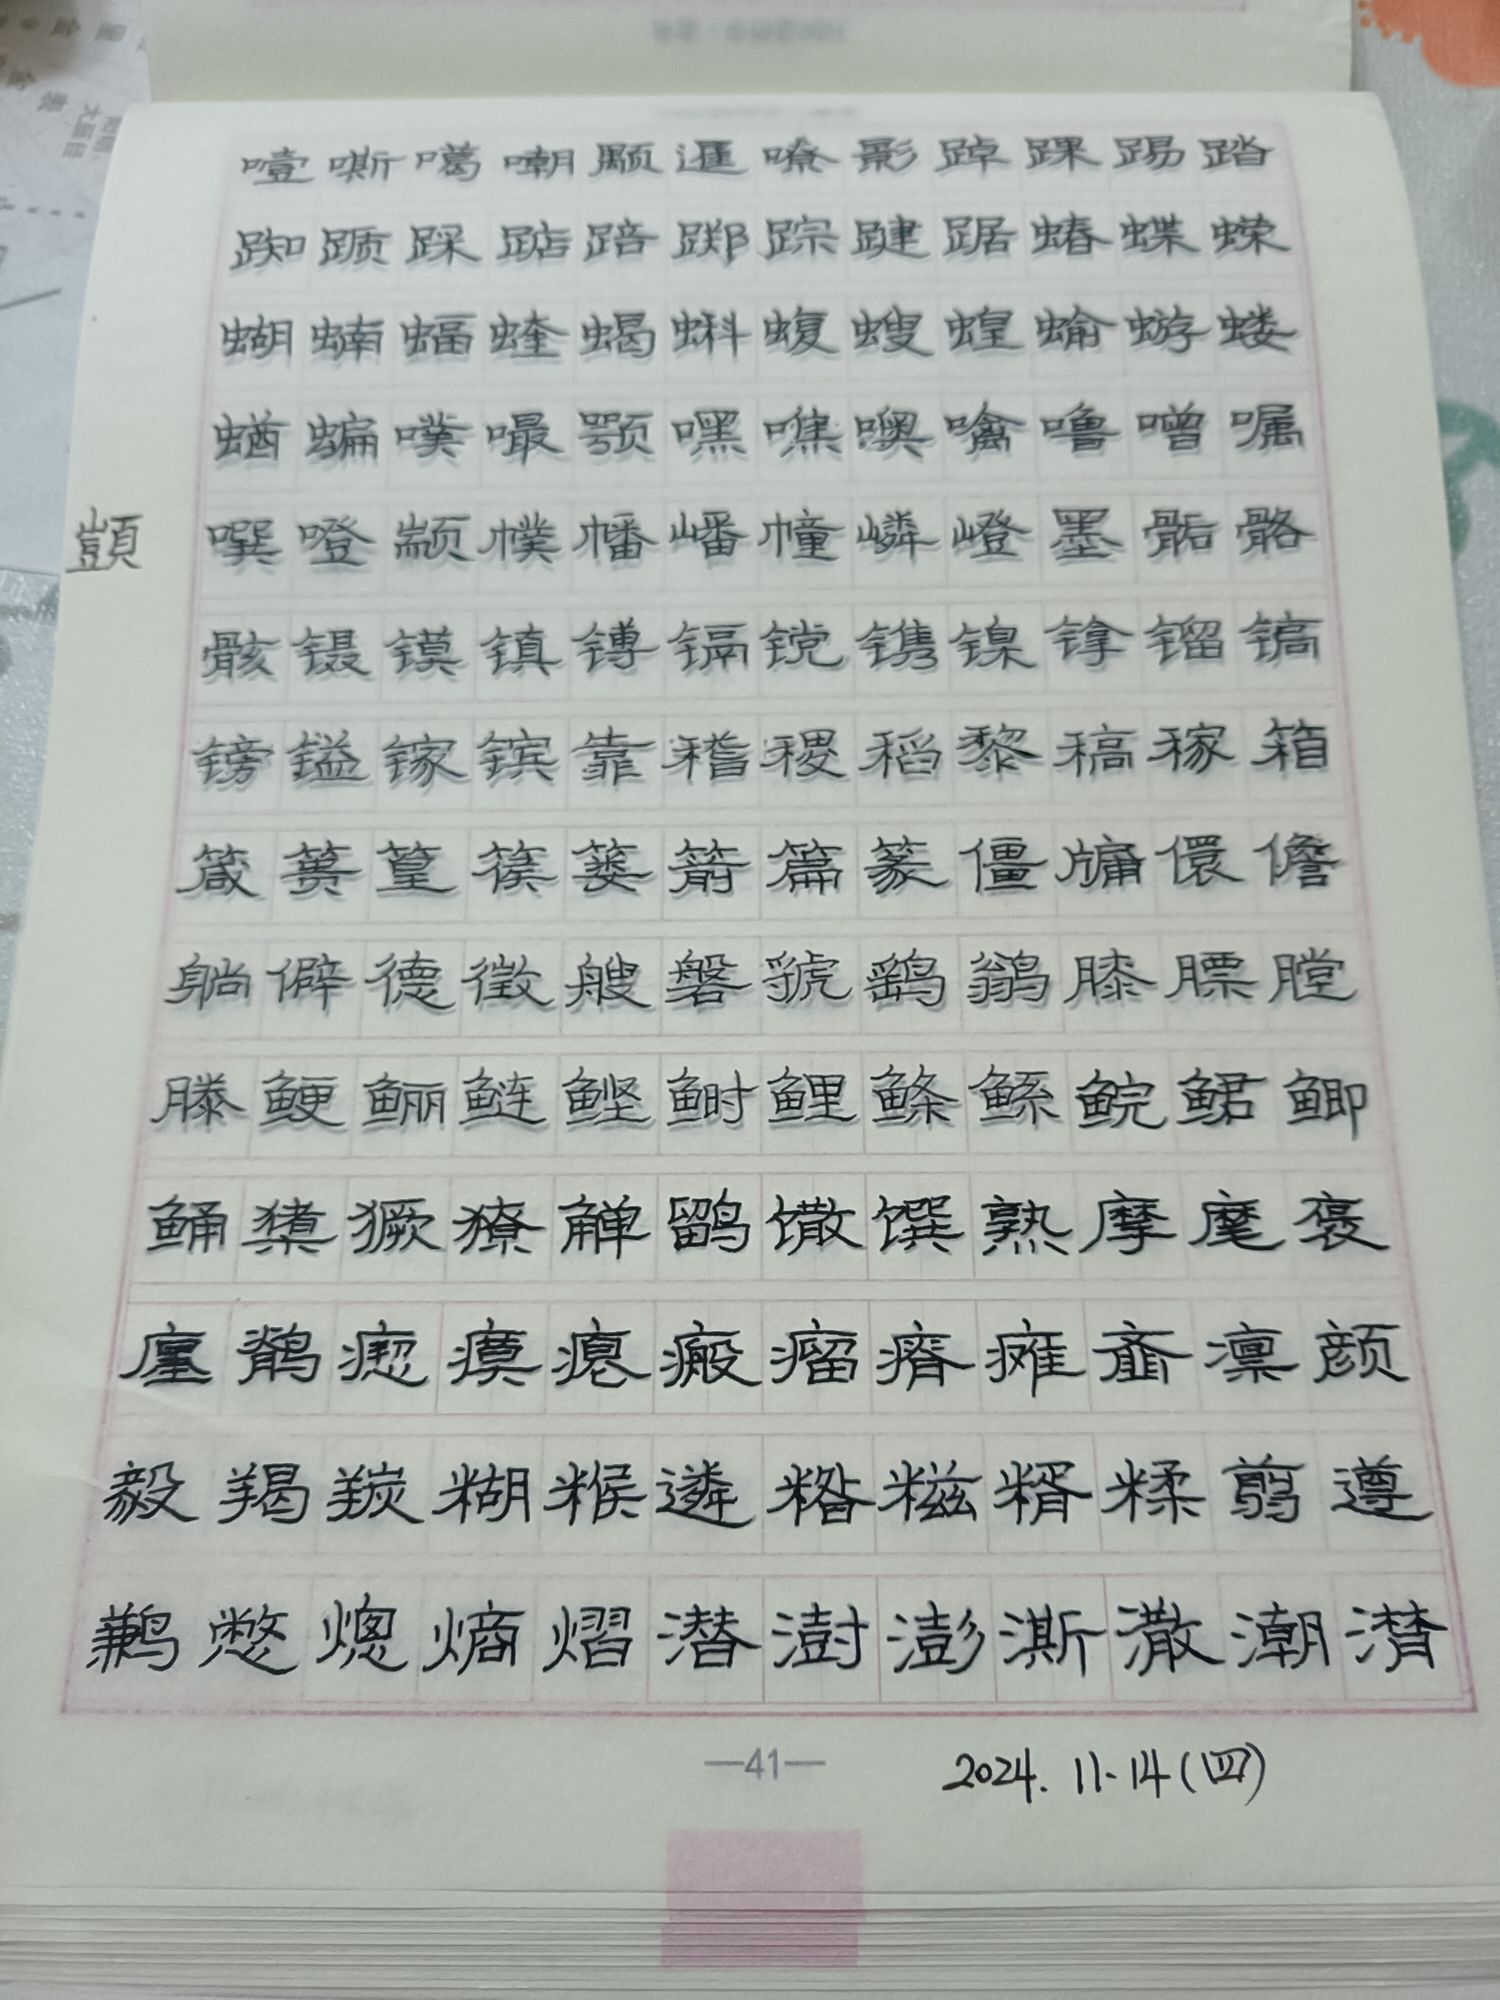 噎嘶噶嘲颙暹嘹影踔踝踢踏
踟踬踩踮踣踯踪踺踞蝽蝶蝾
蝴蝻蝠蝰蝎蝌蝮螋蝗蝓蝣蝼
蝤蝙噗嘬颚嘿噍噢噙噜噌嘱
噀噔颛幞幡嶓幢嶙嶝墨骺骼
骸镊镆镇镈镉镋镌镍镎镏镐
镑镒镓镔靠稽稷稻黎稿稼箱
箴篑篁篌篓箭篇篆僵牖儇儋
躺僻德徵艘磐虢鹞鹟膝膘膛
滕鲠鲡鲢鲣鲥鲤鲦鲧鲩鲲鲫
鲬獚獗獠觯鹠馓馔熟摩麾褒
廛鹡瘛瘼瘪瘢瘤瘠瘫齑凛颜
毅羯羰糊糇遴糌糍糈糅翦遵
鹣憋熜熵熠潜澍澎澌潵潮潸
顗
—41—
2024.11.14(四)